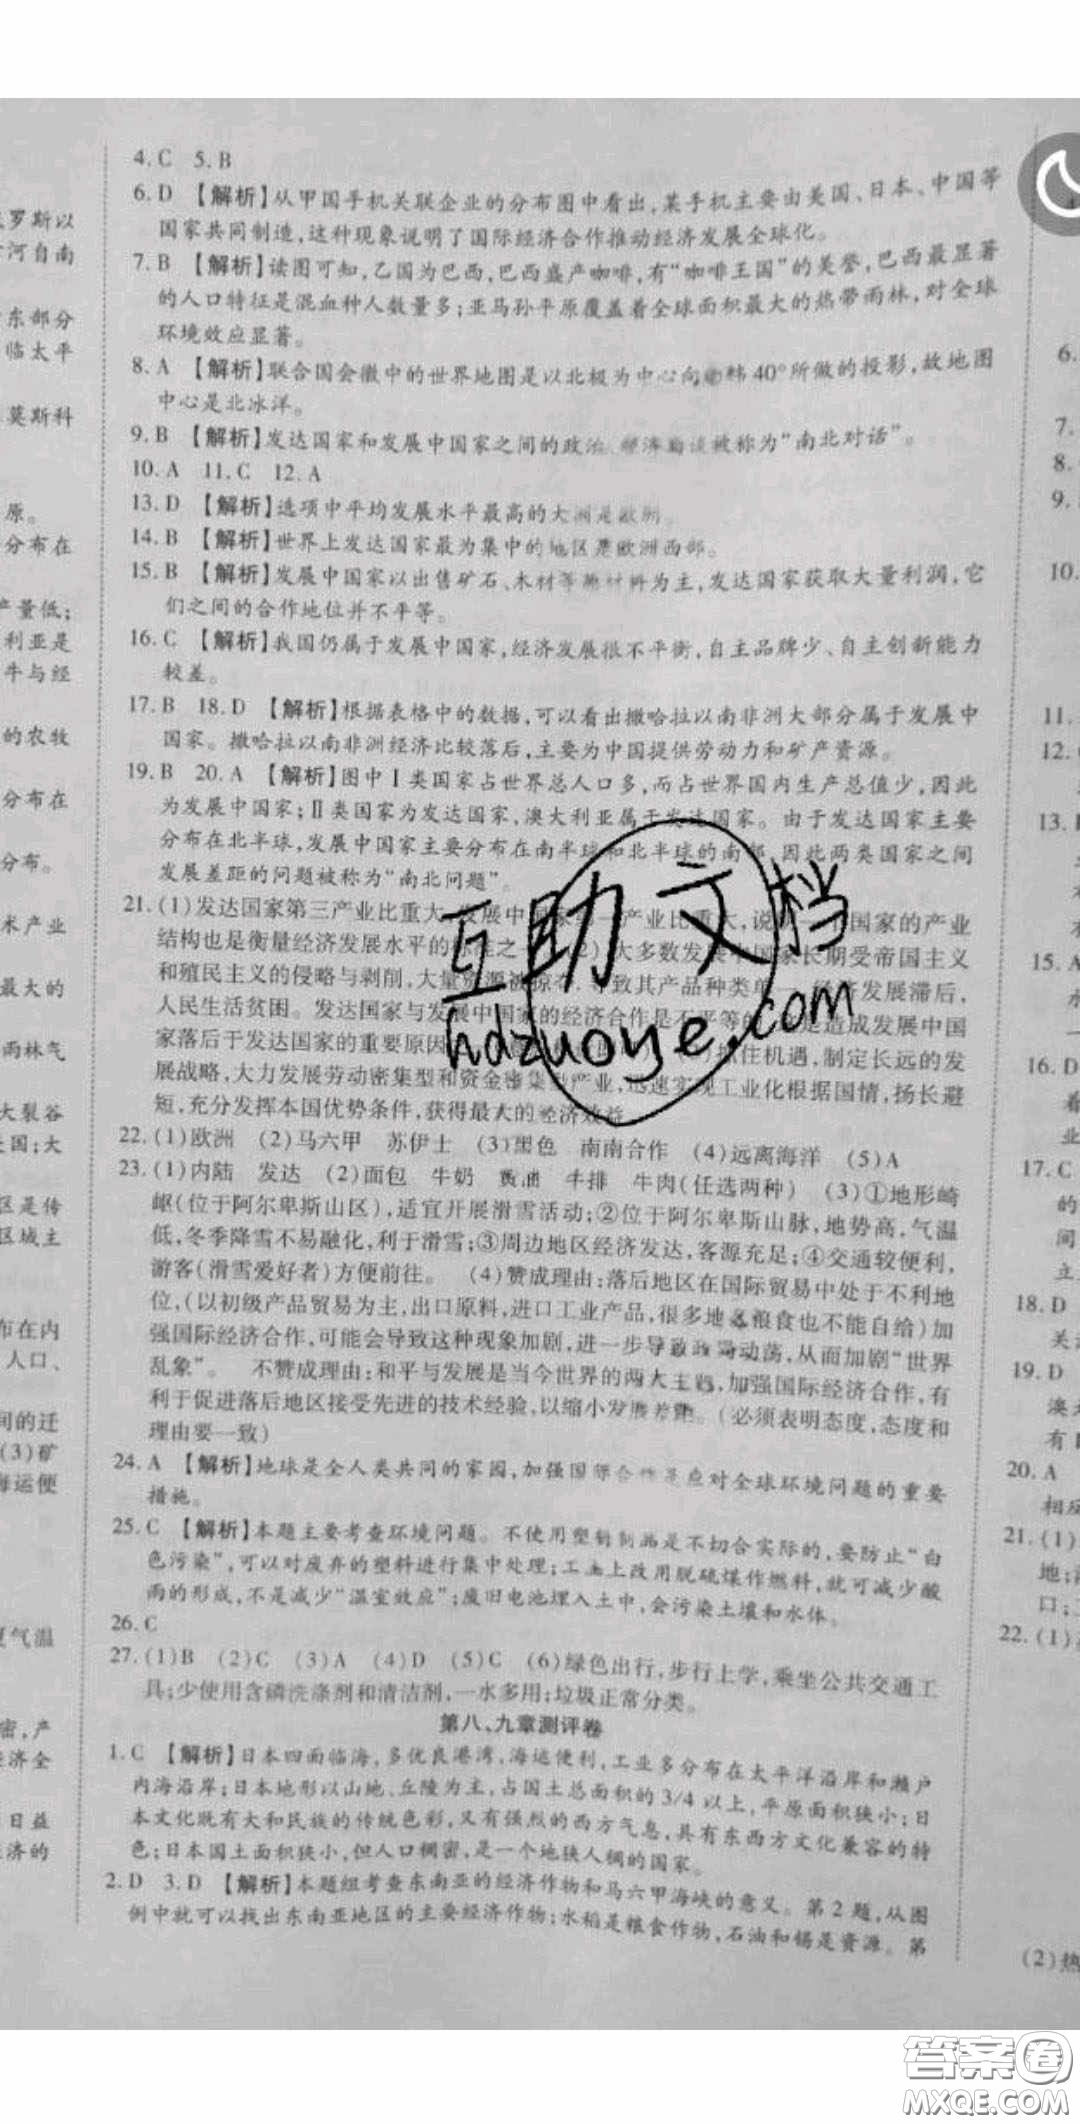 4. C 5. B
6. D 【解析】从甲国手机关联企业的分布图中看出,某手机主要由美国、日本、中国等
国家共同制造,这种现象说明了国际经济合作推动经济发展全球化。
7. B 【解析】读图可知,乙国为巴西,巴西盛产咖啡,有“咖啡王国”的美誉,巴西最显著
的人口特征是混血种人数量多;亚马孙平原覆盖着全球面积最大的热带雨林,对全球
环境效应显著。
8. A 【解析】联合国会徽中的世界地图是以北极为中心向南纬40°所做的投影,故地图
中心是北冰洋。
9. B 【解析】发达国家和发展中国家之间的政治、经济商谈被称为“南北对话”。
10. A 11. C 12. A
13. D 【解析】选项中平均发展水平最高的大洲是欧洲。
14. B 【解析】世界上发达国家最为集中的地区是欧洲西部。
15. B 【解析】发展中国家以出售矿石、木材等原材料为主,发达国家获取大量利润,它
们之间的合作地位并不平等。
16. C 【解析】我国仍属于发展中国家,经济发展很不平衡,自主品牌少、自主创新能力
较差。
17. B 18. D 【解析】根据表格中的数据,可以看出撒哈拉以南非洲大部分属于发展中
国家。撒哈拉以南非洲经济比较落后,主要为中国提供劳动力和矿产资源。
19. B 20. A 【解析】图中Ⅰ类国家占世界总人口多,而占世界国内生产总值少,因此
为发展中国家;Ⅱ类国家为发达国家,澳大利亚属于发达国家。由于发达国家主要
分布在北半球,发展中国家主要分布在南半球和北半球的南部,因此两类国家之间
发展差距的问题被称为“南北问题”。
21. (1)发达国家第三产业比重大,发展中国家第一产业比重大,说明一个国家的产业
结构也是衡量经济发展水平的标准之 (2)大多数发展中国家长期受帝国主义
和殖民主义的侵略与剥削,大量资源被掠夺,导致其产品种类单一,经济发展滞后,
人民生活贫困。发达国家与发展中国家的经济合作是不平等的 是造成发展中国
家落后于发达国家的重要原因 抓住机遇,制定长远的发
展战略,大力发展劳动密集型和资金密集型产业,迅速实现工业化根据国情,扬长避
短,充分发挥本国优势条件,获得最大的经济效益
22. (1)欧洲 (2)马六甲 苏伊士 (3)黑色 南南合作 (4)远离海洋 (5)A
23. (1)内陆 发达 (2)面包 牛奶 黄油 牛排 牛肉(任选两种) (3)①地形崎
岖(位于阿尔卑斯山区),适宜开展滑雪活动;②位于阿尔卑斯山脉,地势高,气温
低,冬季降雪不易融化,利于滑雪;③周边地区经济发达,客源充足;④交通较便利,
游客(滑雪爱好者)方便前往。 (4)赞成理由:落后地区在国际贸易中处于不利地
位,(以初级产品贸易为主,出口原料,进口工业产品,很多地区粮食也不能自给)加
强国际经济合作,可能会导致这种现象加剧,进一步导致政局动荡,从而加剧“世界
乱象”。 不赞成理由:和平与发展是当今世界的两大主题,加强国际经济合作,有
利于促进落后地区接受先进的技术经验,以缩小发展差距。(必须表明态度,态度和
理由要一致)
24. A 【解析】地球是全人类共同的家园,加强国际合作是应对全球环境问题的重要
措施。
25. C 【解析】本题主要考查环境问题。不使用塑料制品是不切合实际的,要防止“白
色污染”,可以对废弃的塑料进行集中处理;工业上改用脱硫煤作燃料,就可减少酸
雨的形成,不是减少“温室效应”;废旧电池埋入土中,会污染土壤和水体。
26. C
27. (1)B (2)C (3)A (4)D (5)C (6)绿色出行,步行上学,乘坐公共交通工
具;少使用含磷洗涤剂和清洁剂,一水多用;垃圾正常分类。
第八、九章测评卷
1. C 【解析】日本四面临海,多优良港湾,海运便利,工业多分布在太平洋沿岸和濑户
内海沿岸;日本地形以山地、丘陵为主,占国土总面积的3/4以上,平原面积狭小;日
本文化既有大和民族的传统色彩,又有强烈的西方气息,具有东西方文化兼容的特
色;日本国土面积狭小,但人口稠密,是一个地狭人稠的国家。
2. D 3. D 【解析】本题组考查东南亚的经济作物和马六甲海峡的意义。第2题,从图
例中就可以找出东南亚地区的主要经济作物;水稻是粮食作物,石油和锡是资源。第
罗斯以
河自南
东部分
临太平
莫斯科
原。
分布在
产量低;
利亚是
牛与经
的农牧
分布在
分布。
术产业
最大的
雨林气
大裂谷
国;大
区是传
区域主
布在内
人口、
间的迁
(3)矿
海运便
夏气温
密,产
经济全
日益
经济的
6.
7.
8.
9.
10.
11.
12.
13.
15. A
水
一
16. D
业
17. C
的
间
立
18. D
关
19. D
澳
有
20. A
相应
21. (1)
地;
口;
22. (1)
(2)热
互助文档
hdzuoye.com
答案卷
MXQE.COM